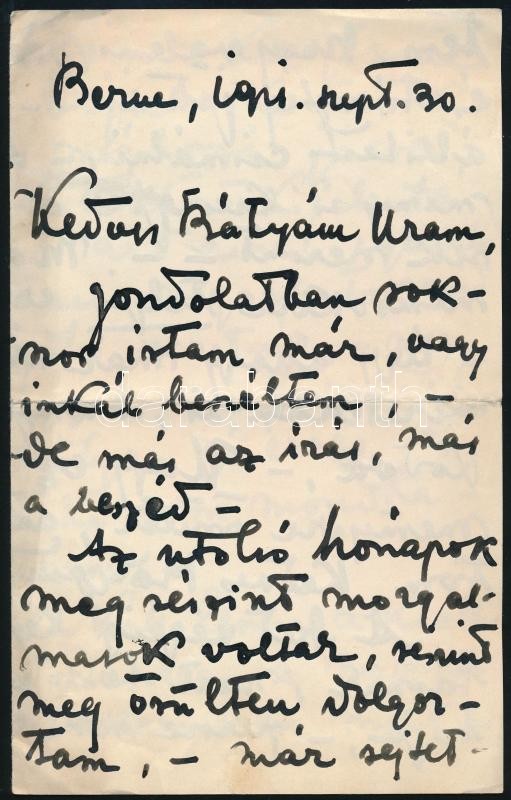 Berne, 1911. szept. 30.
Kedves Bátyám Uram,
gondolatban sok-
szor irtam már, vagy
inkáb beszéltem, –
de más az irás, más
a beszéd –
Az utolsó hónapok
meg részint mozgal-
masok voltak, részint
meg őrülten dolgoz-
tam, – már sejtet-
darabanth